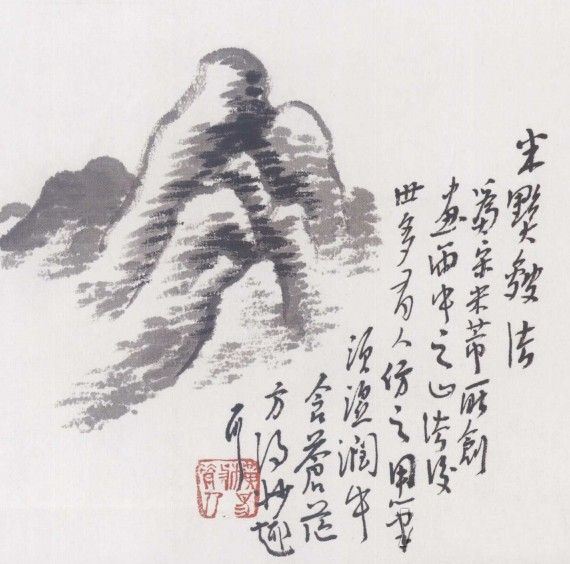 米點皴法
為宋米芾所創
畫雨中之山法後
世多有人仿之用筆
須溫潤中
含蒼茫
方得妙趣